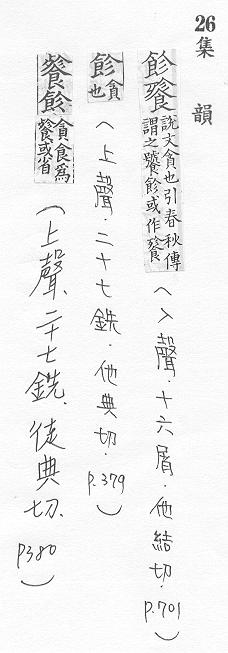 26
集 韻
飻餮 說文貪也引春秋傳謂之饕飻或作餮 (入聲．十六屑．他結切．p.701)
飻 貪也 (上聲．二十七銑．他典切．p.379)
餮飻 貪食為餮或省 (上聲．二十七銑．徒典切．p380)